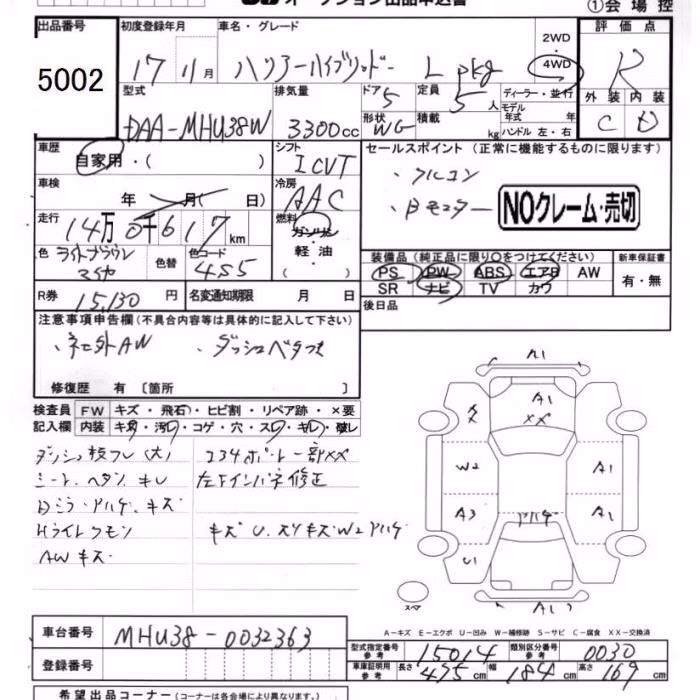 オークション出品申込書
①会場控
出品番号 初度登録年月 車名・グレード 評価点
5002 17 11月 ハリアーハイブリッド L pkg 2WD 4WD R
型式 排気量 ドア 5 定員 5人 ディーラー・並行 外装 内装
DAA-MHU38W 3300cc 形状 WG 積載 kg モデル年式 年 ハンドル 左・右 C D
車歴 シフト セールスポイント (正常に機能するものに限ります)
自家用・( ) ICVT
・フルコン
車検 年 月( 日) 冷房 AAC
・Bモニター NOクレーム・売切
走行 14万0千617km 燃料 ガソリン 軽油 ( )
色 ライトブラウン マイカ 色替 色コード 4S5
装備品 (純正品に限り○をつけてください) 新車保証書
PS PW ABS エアB AW 有・無
SR ナビ TV カワ
R券 15,130円 名変通知期限 月 日
後日品
注意事項申告欄 (不具合内容等は具体的に記入して下さい)
・ネジ外AW ・ダッシュベタつき
修復歴 有 〔箇所 〕
検査員 FW キズ・飛石・ヒビ割・リペア跡・×要
記入欄 内装 キズ・汚レ・コゲ・穴・スレ・キレ・破レ
シート、ヘタリ、キレ
左Fインパネ修正
Dミラーアハゲ、キズ
Hライトクモリ
キズ U.スリキズ W2 アハゲ
AWキズ
A1
A1
XX
W2 A1
A3 A1
アハゲ
U1
スペア A1
A−キズ E−エクボ U−凹み W−補修跡 S−サビ C−腐食 XX−交換済
車台番号 MHU38-0032363
型式指定番号 参考 15014 類別区分番号 参考 0030
登録番号 車庫証明用 参考 長さ 475cm 幅 184cm 高さ 169cm
希望出品コーナー (コーナーは各会場により異なります。)